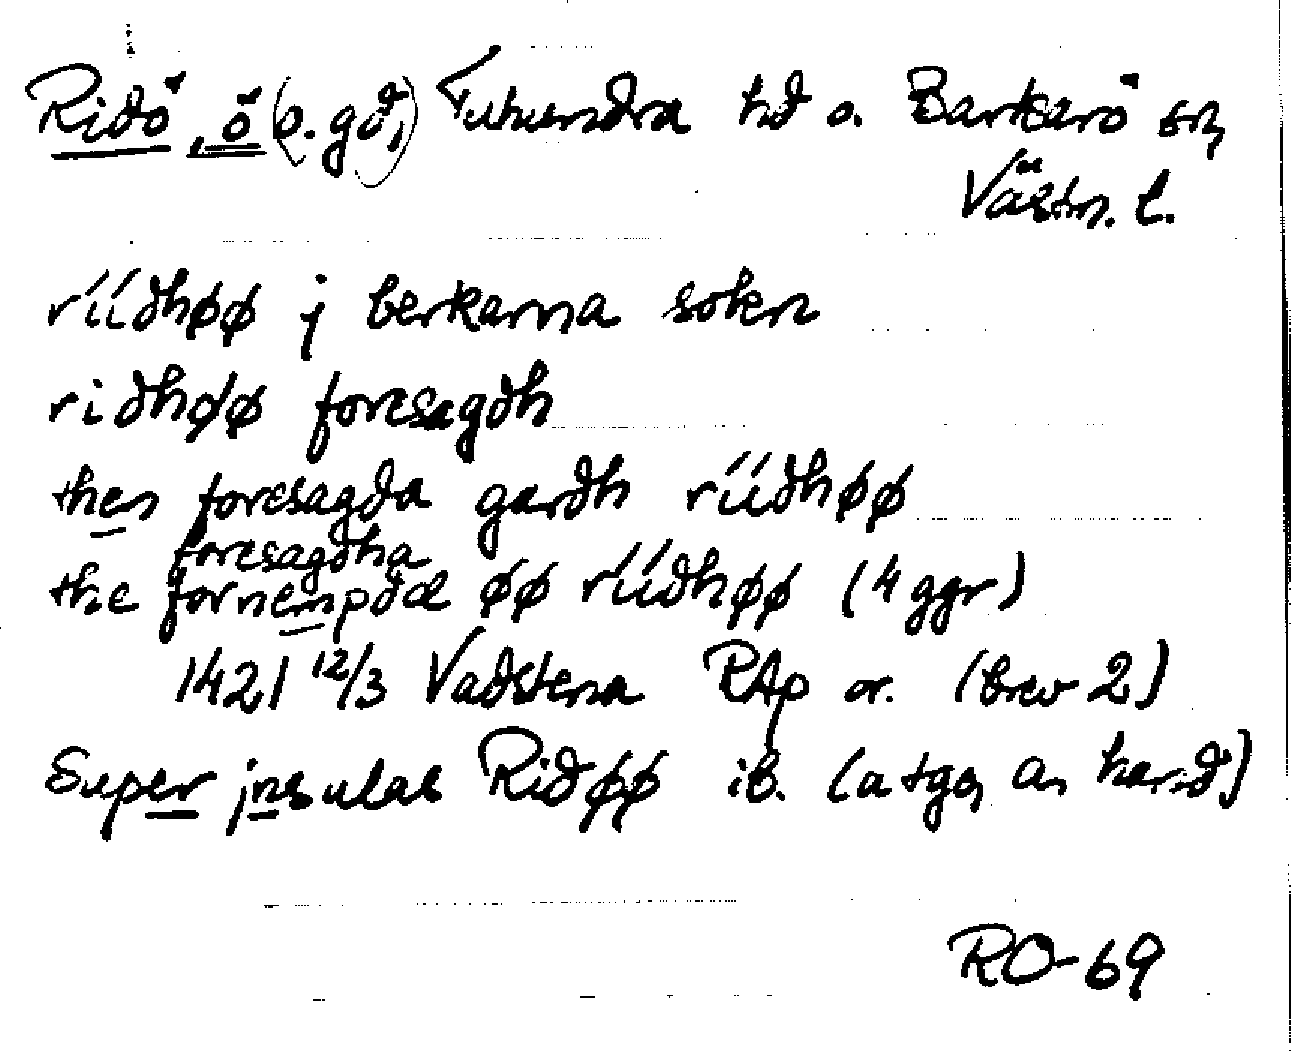 Ridö, ö (o. gd,) Tuhundra hd o. Barkarö sn,
Västm. l.
ríídhøø j berkarna sokn
ridhøø foresagdh
then foresagda gardh ríídhøø
foresagdha
the fornempdæ øø ríídhøø (4 ggr)
1421 12/3 Vadstena RAp or. (brev 2)
Super jnsulas Ridøø ib. (a tgo, an hand)
RO-69